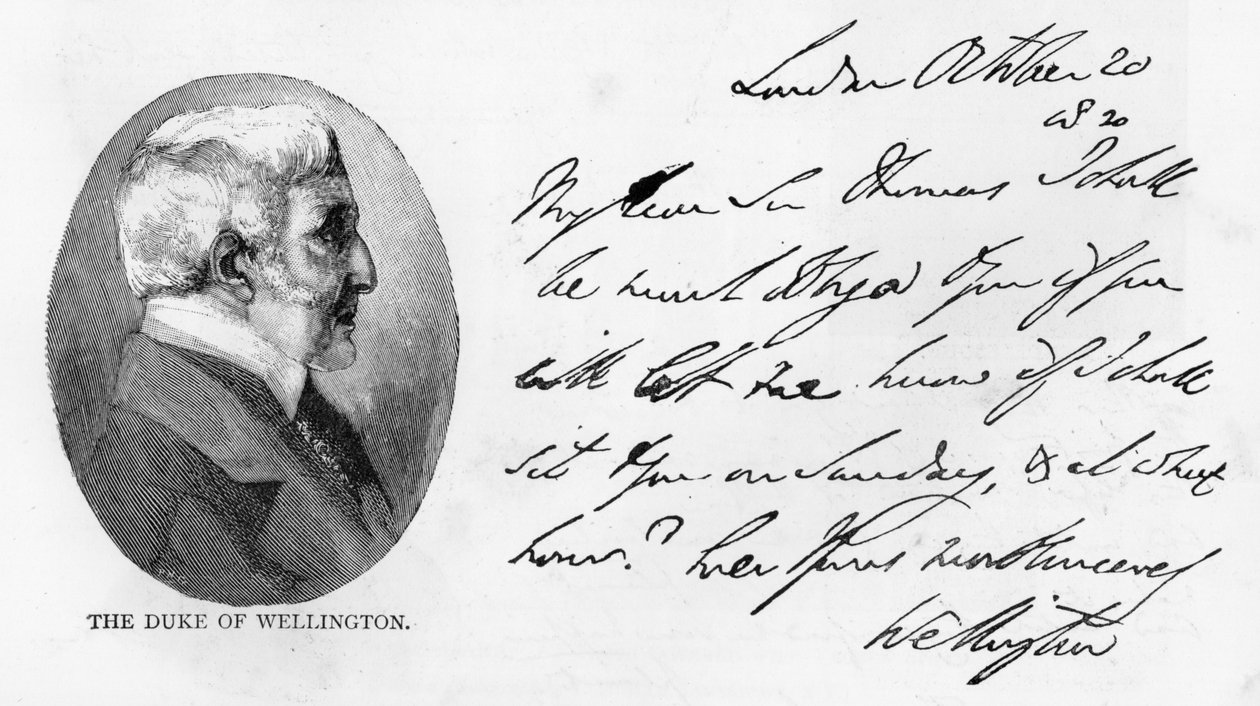 THE DUKE OF WELLINGTON.
London October 20
20
My Dear Sir Thomas I shall
be much obliged to you if you
will let me know if I shall
sit to you on Sunday, & at what
hour? Ever Yours most sincerely
Wellington